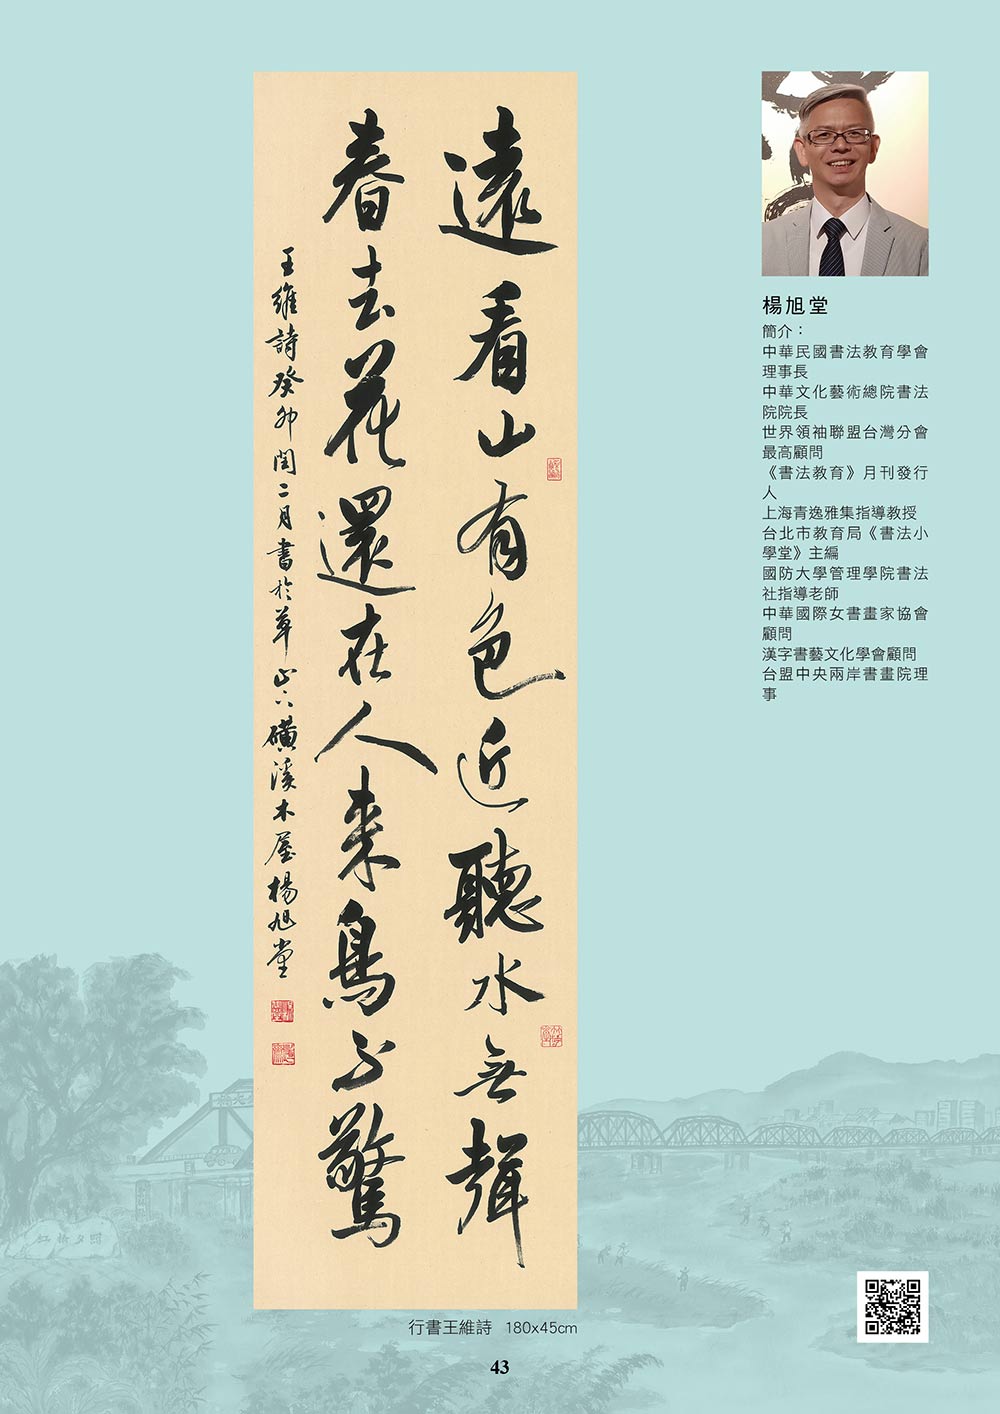 遠看山有色近聽水無聲
春去花還在人來鳥不驚
王維詩癸卯閏二月書於草山下磺溪木屋楊旭堂
楊旭堂
簡介：
中華民國書法教育學會
理事長
中華文化藝術總院書法
院院長
世界領袖聯盟台灣分會
最高顧問
《書法教育》月刊發行
人
上海青逸雅集指導教授
台北市教育局《書法小
學堂》主編
國防大學管理學院書法
社指導老師
中華國際女書畫家協會
顧問
漢字書藝文化學會顧問
台盟中央兩岸書畫院理
事
行書王維詩 180x45cm
43